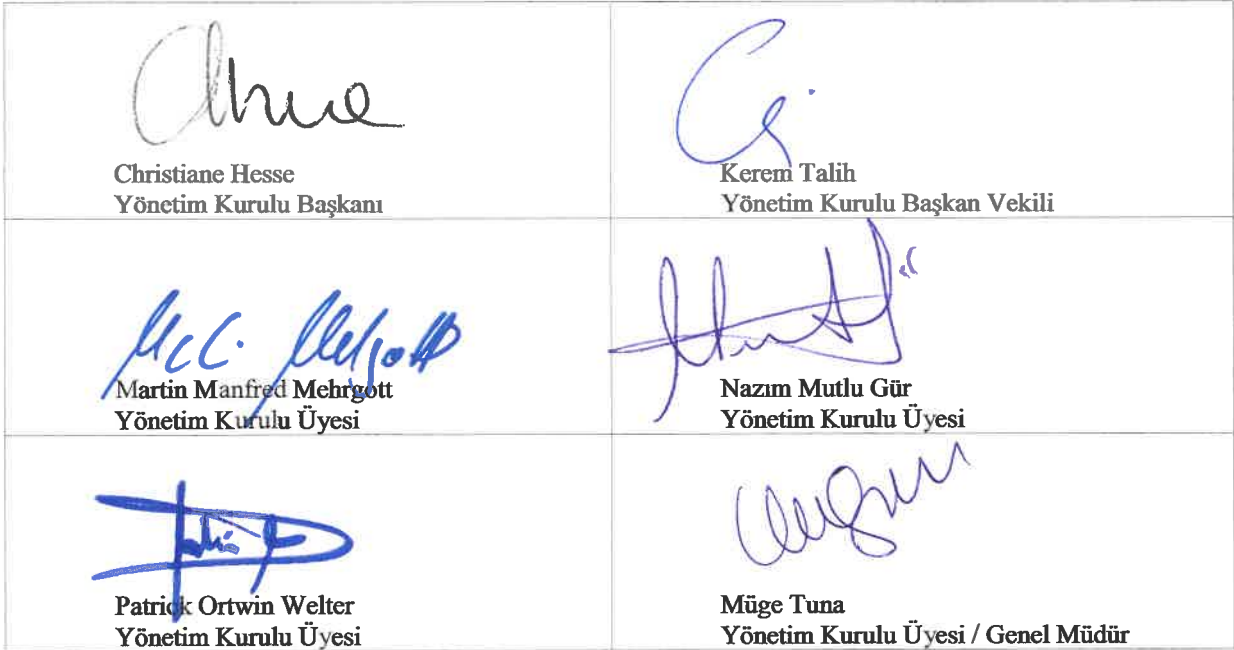 Christiane Hesse
Yönetim Kurulu Başkanı
Kerem Talih
Yönetim Kurulu Başkan Vekili
Martin Manfred Mehrgott
Yönetim Kurulu Üyesi
Nazım Mutlu Gür
Yönetim Kurulu Üyesi
Patrick Ortwin Welter
Yönetim Kurulu Üyesi
Müge Tuna
Yönetim Kurulu Üyesi / Genel Müdür